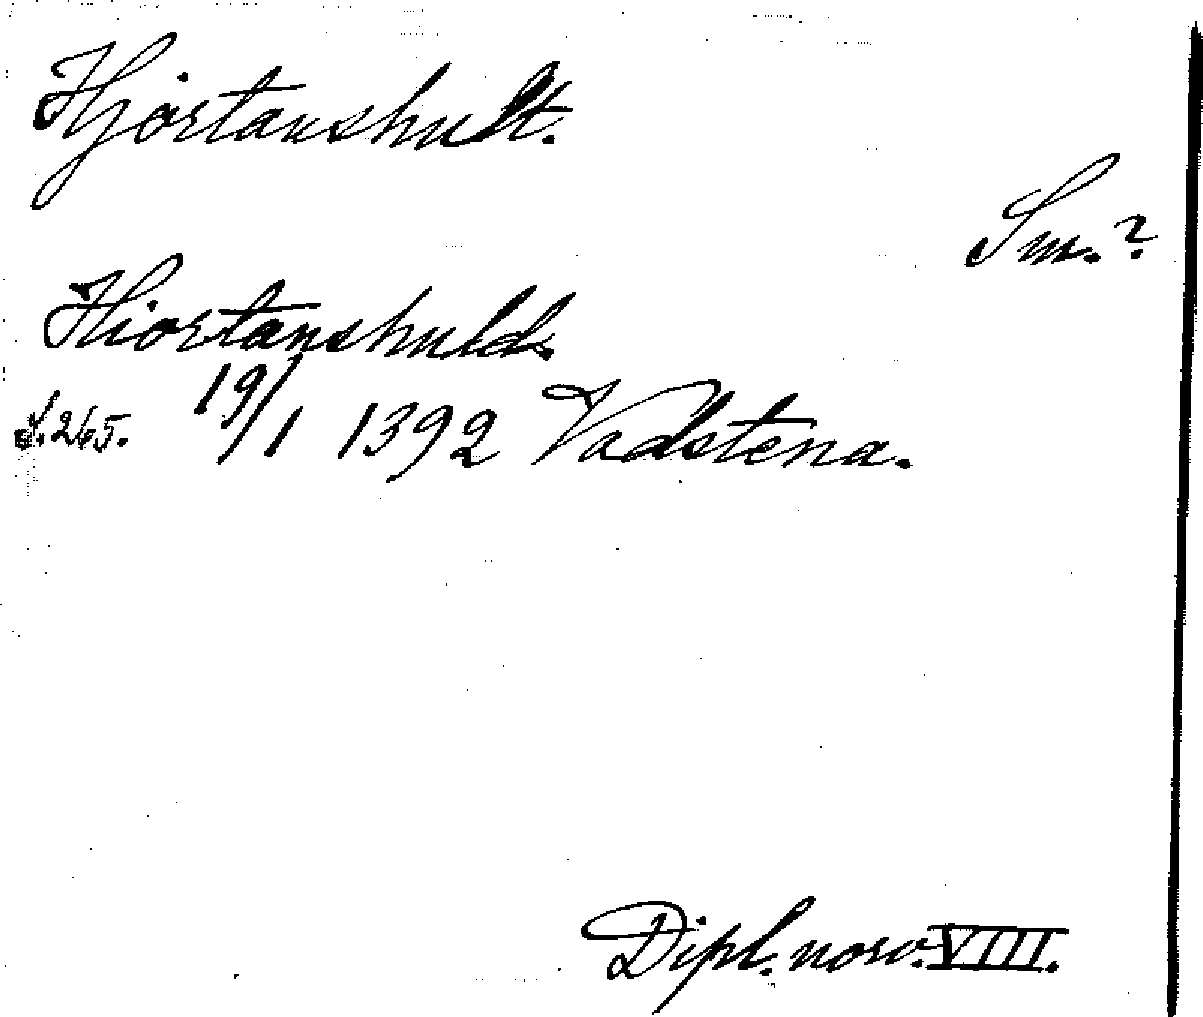 Hjortanshult.
Sm.?
Hiortanshuld.
S. 265. 19/1 1392 Vadstena.
Dipl. norv. VIII.